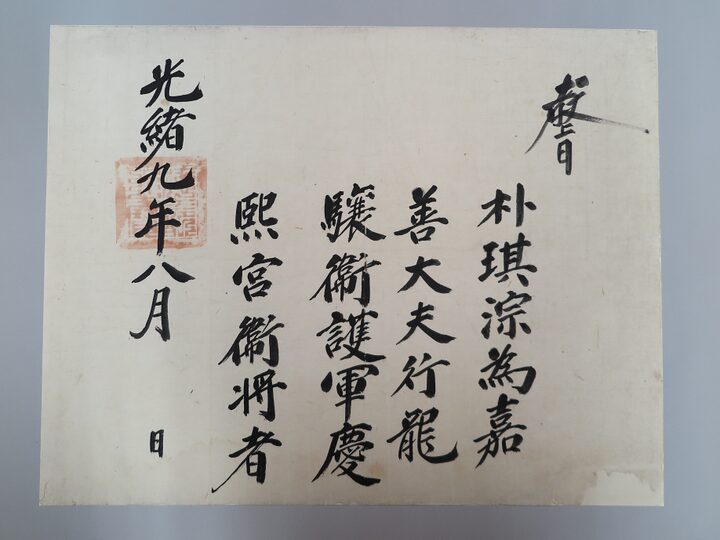 敎旨
朴琪淙為嘉
善大夫行龍
驤衞護軍慶
熙宮衞將者
光緖九年八月 日